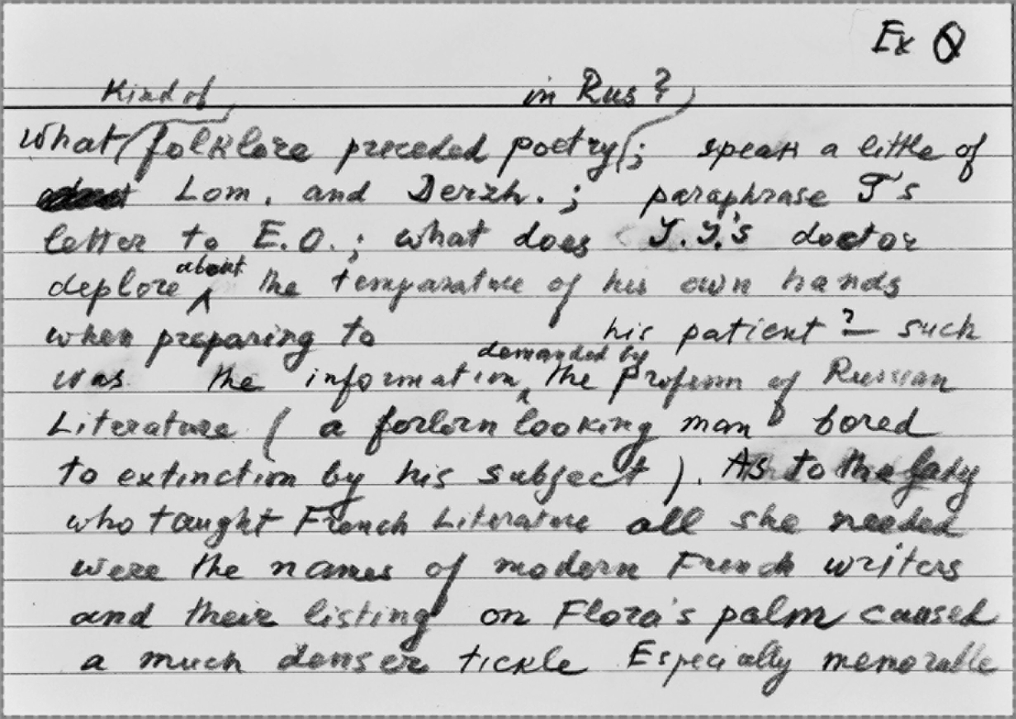 Ex
Kind of in Rus?
What folklore preceded poetry; speak a little of
Lom. and Derzh.; paraphrase T's
letter to E.O.; what does I.I.'s doctor
about
deplore the temparature of his own hands
when preparing to his patient? – such
demanded by
was the information, the profesm of Russian
Literature (a forlorn looking man bored
to extinction by his subject). As to the lady
who taught French Literature all she needed
were the names of modern French writers
and their listing on Flora's palm caused
a much denser tickle Especially memorable